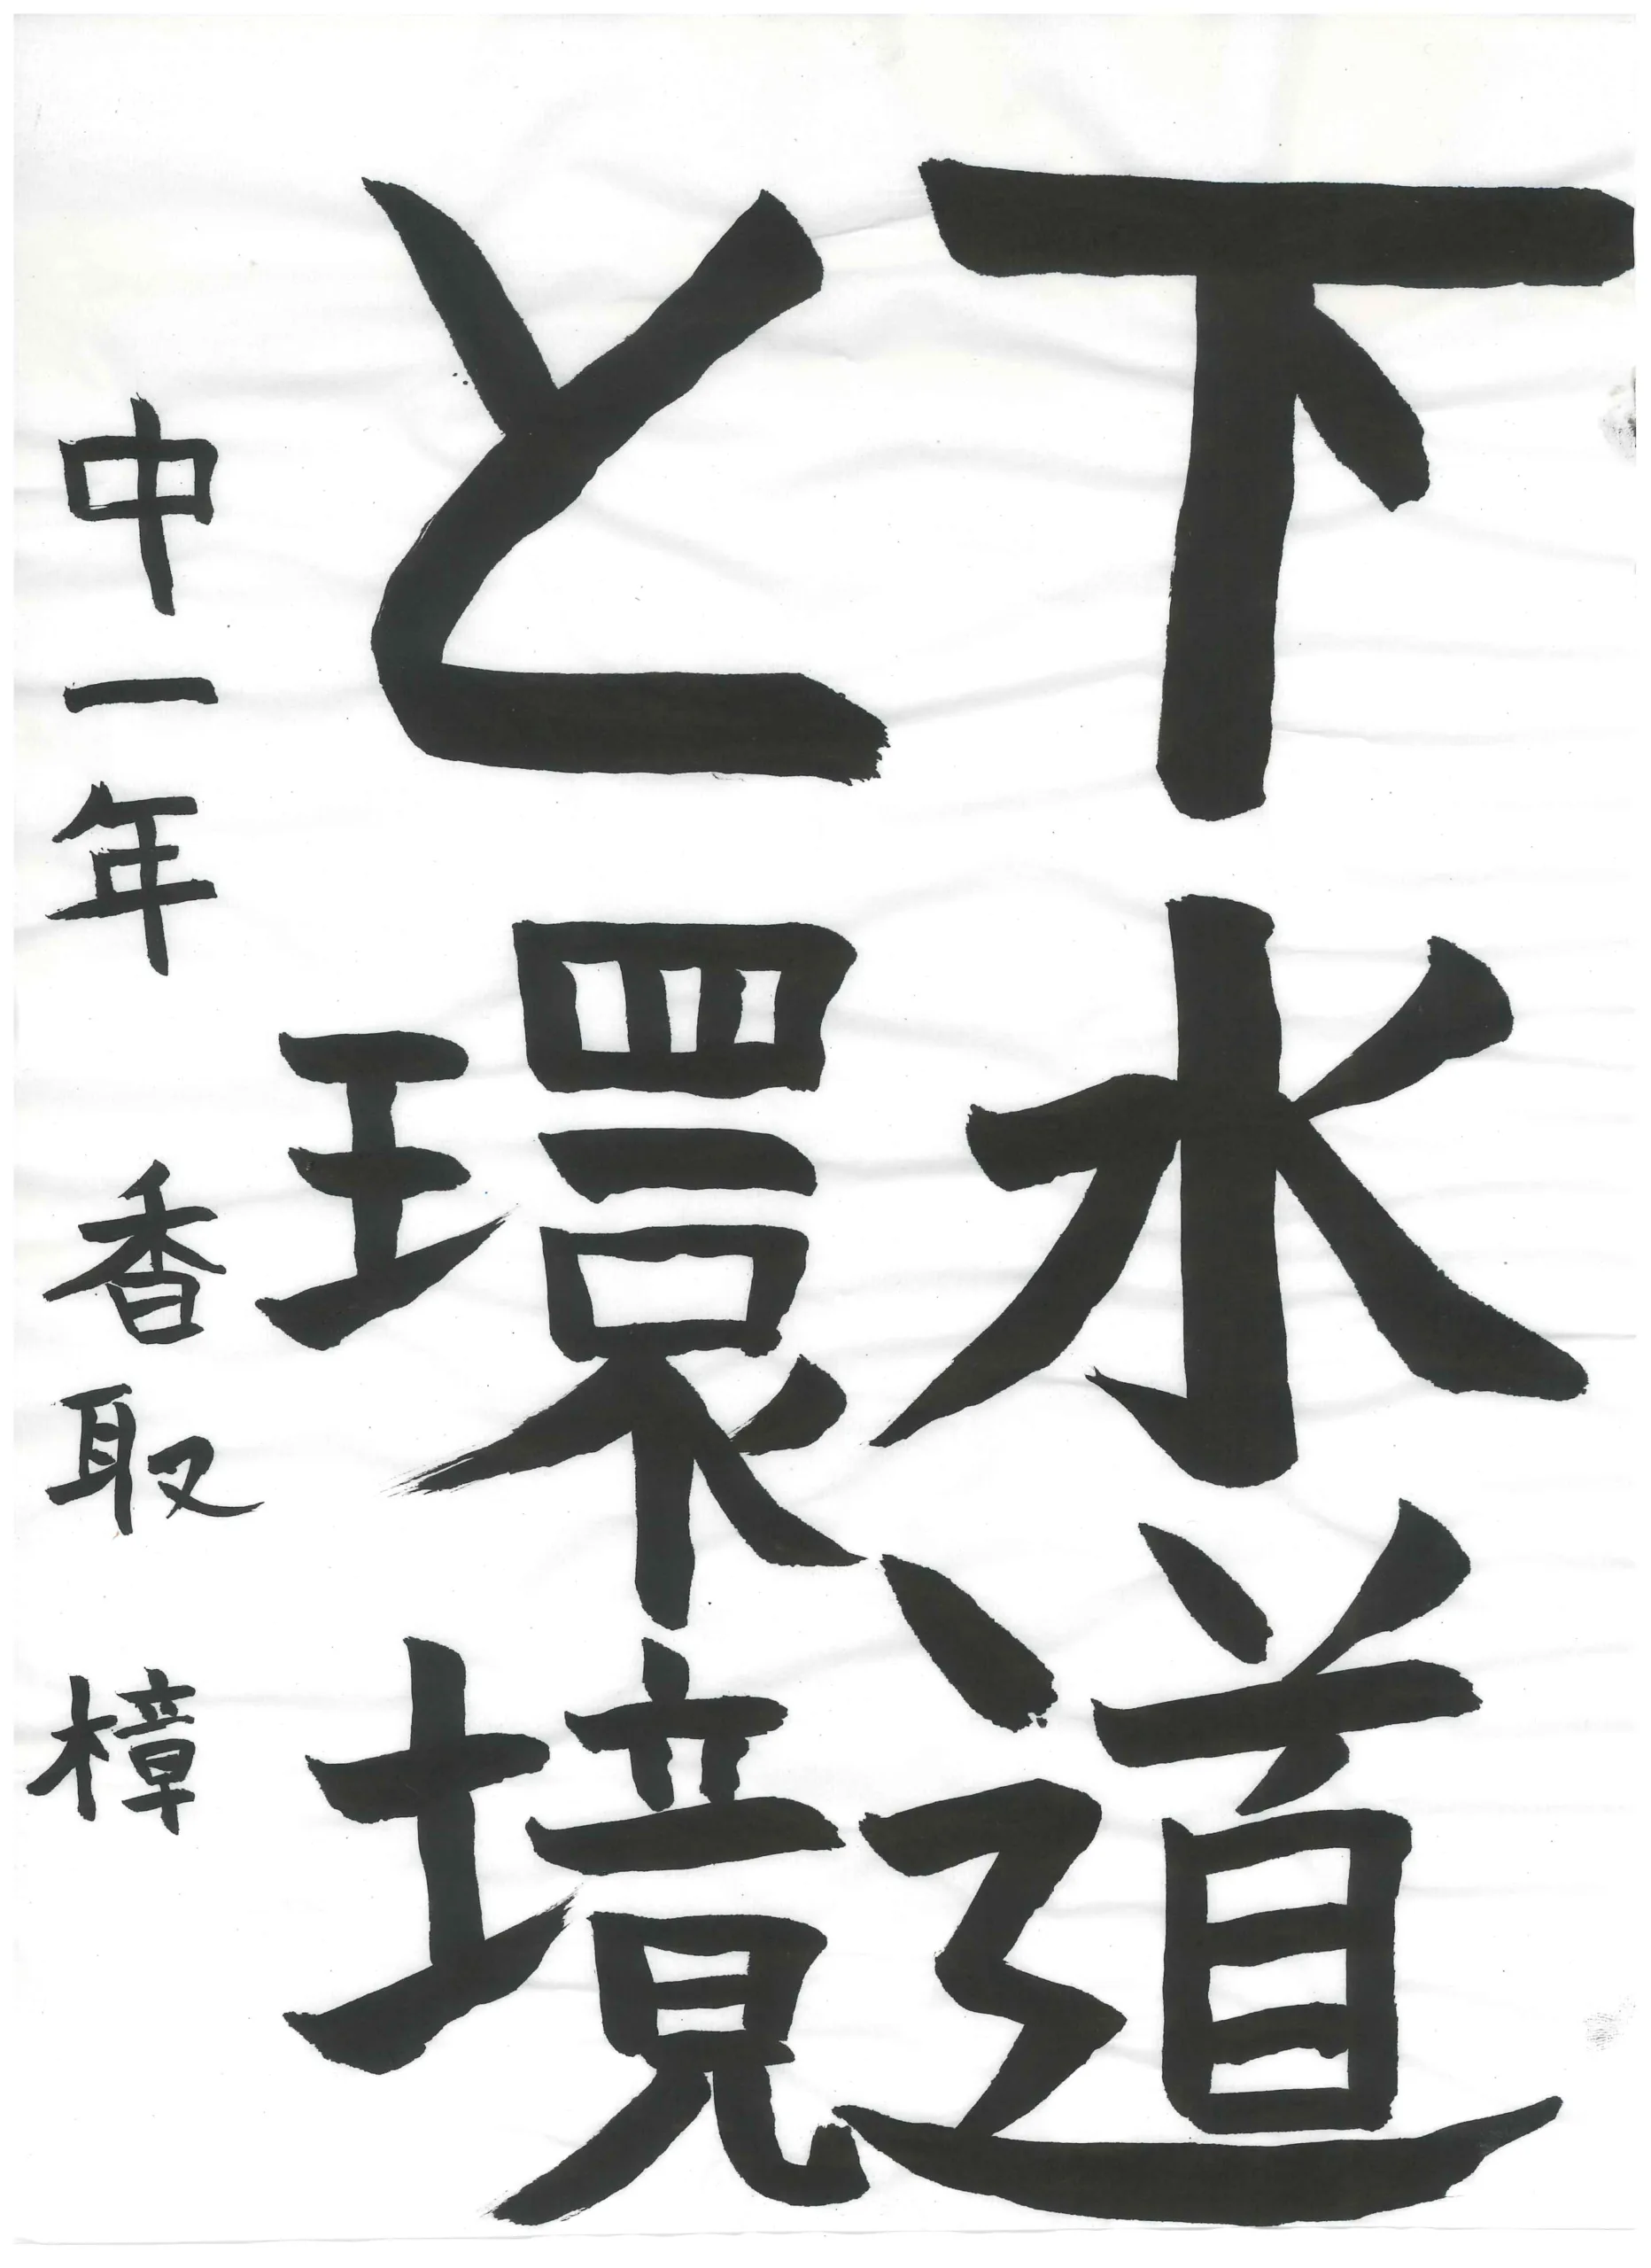 下水道
と環境
中一年 香取 樟